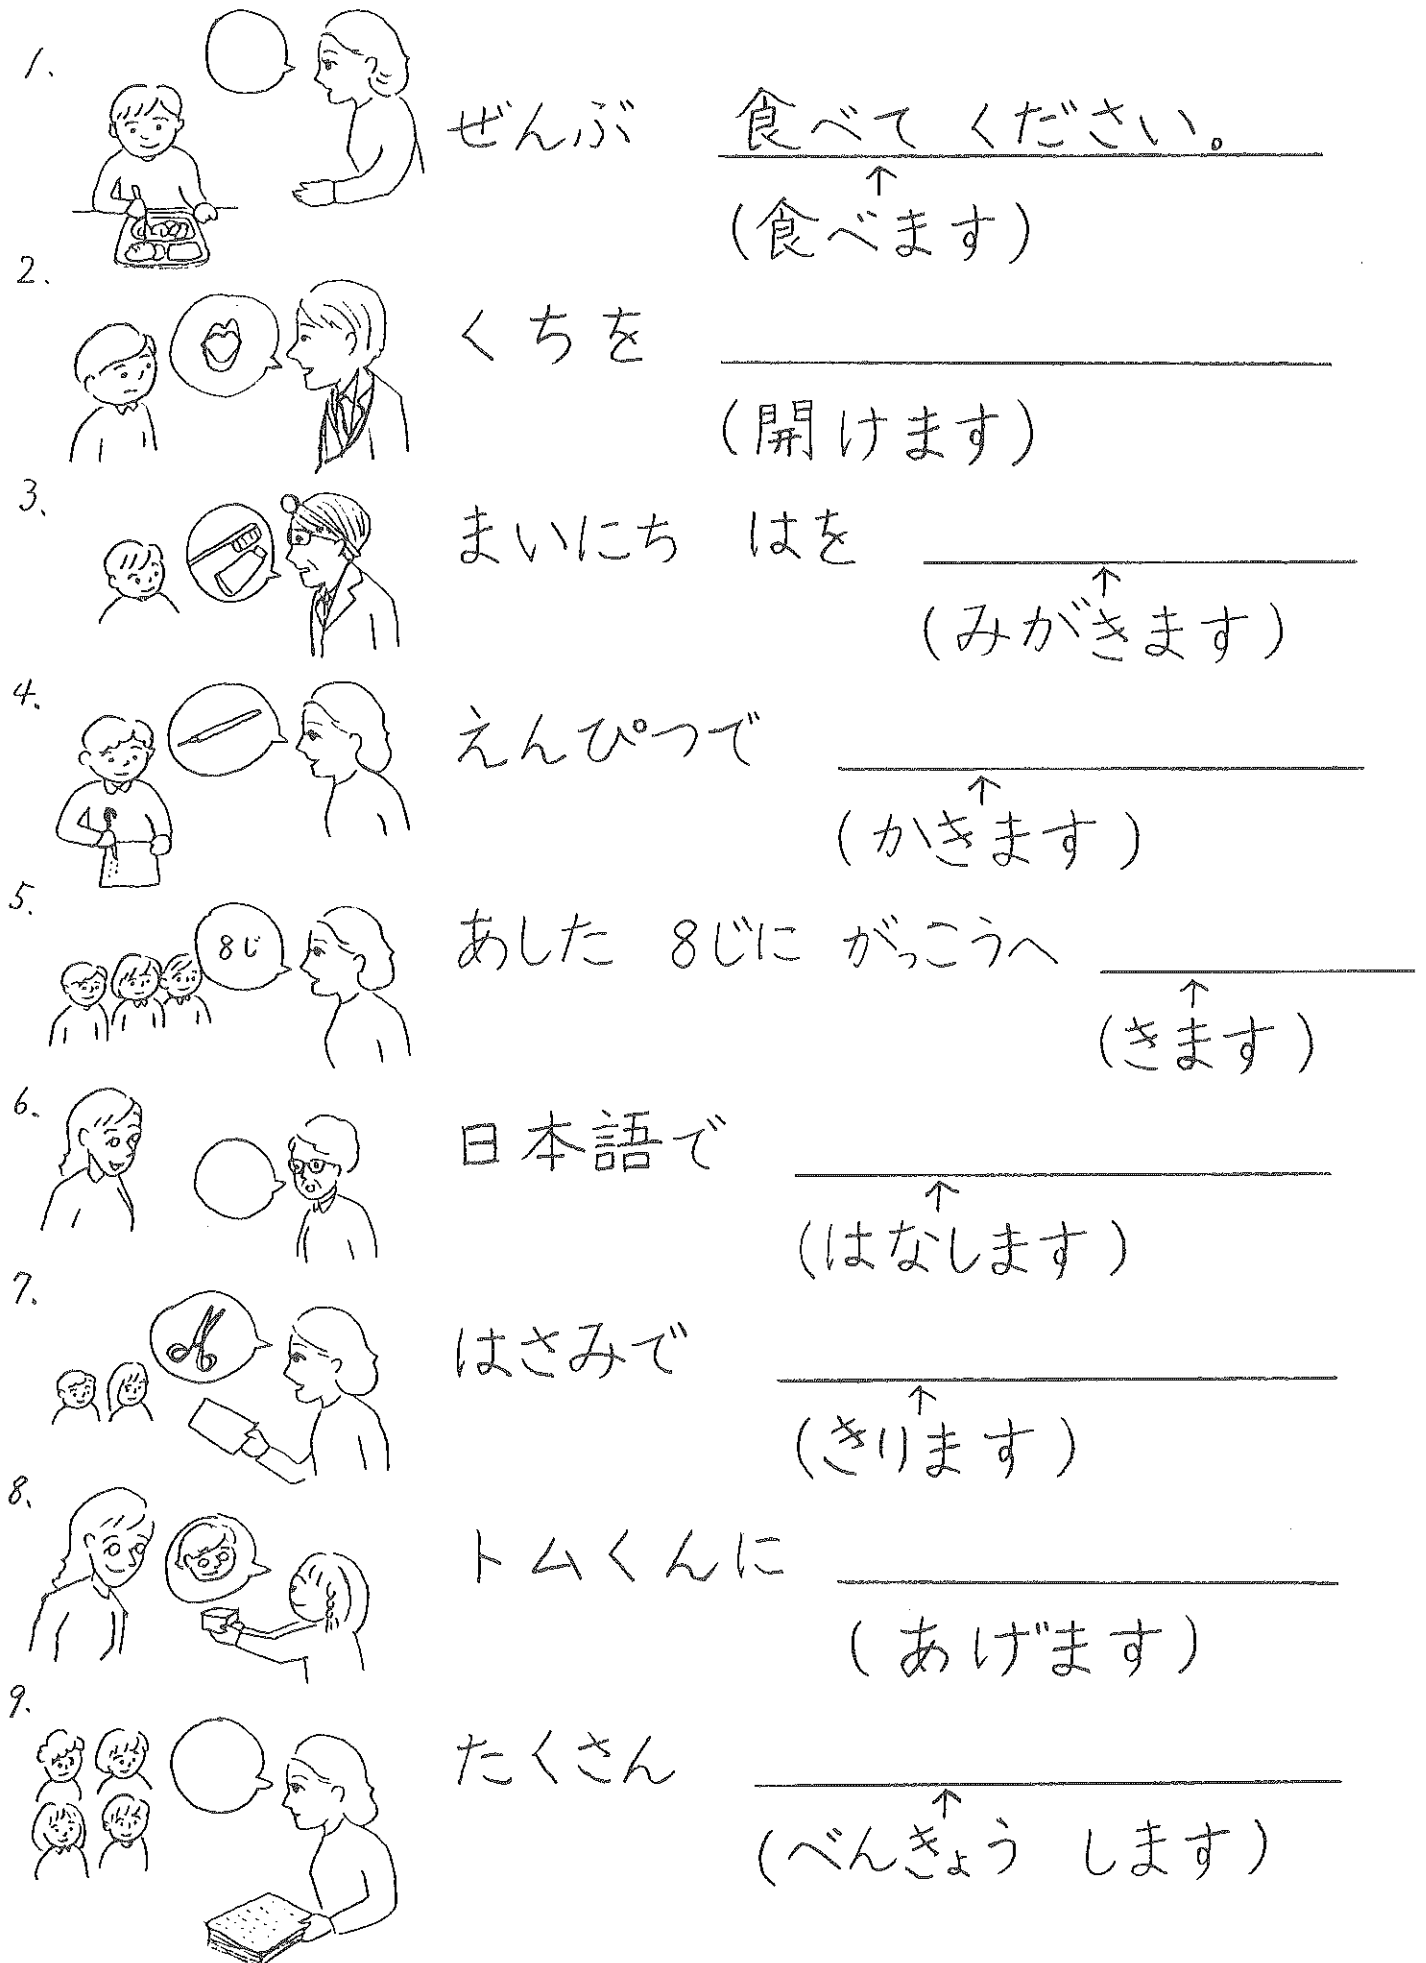 1.
ぜんぶ 食べて ください。
↑
(食べます)
2.
くちを
(開けます)
3.
まいにち はを
↑
(みがきます)
4.
えんぴつで
↑
(かきます)
5.
8じ
あした 8じに がっこうへ
↑
(きます)
6.
日本語で
↑
(はなします)
7.
はさみで
↑
(きります)
8.
トムくんに
(あげます)
9.
たくさん
↑
(べんきょう します)